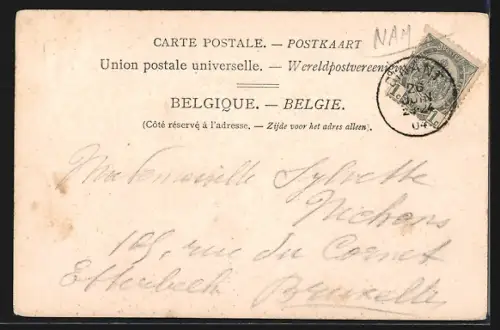 NAM
CARTE POSTALE. — POSTKAART
Union postale universelle. — Wereldpostvereeni
BELGIQUE. — BELGIE.
(Côté réservé à l'adresse. — Zijde voor het adres alleen).
26
JUIN
04
Mademoiselle Sylvette
105, rue du Cornet
Etterbeek Bruxelles